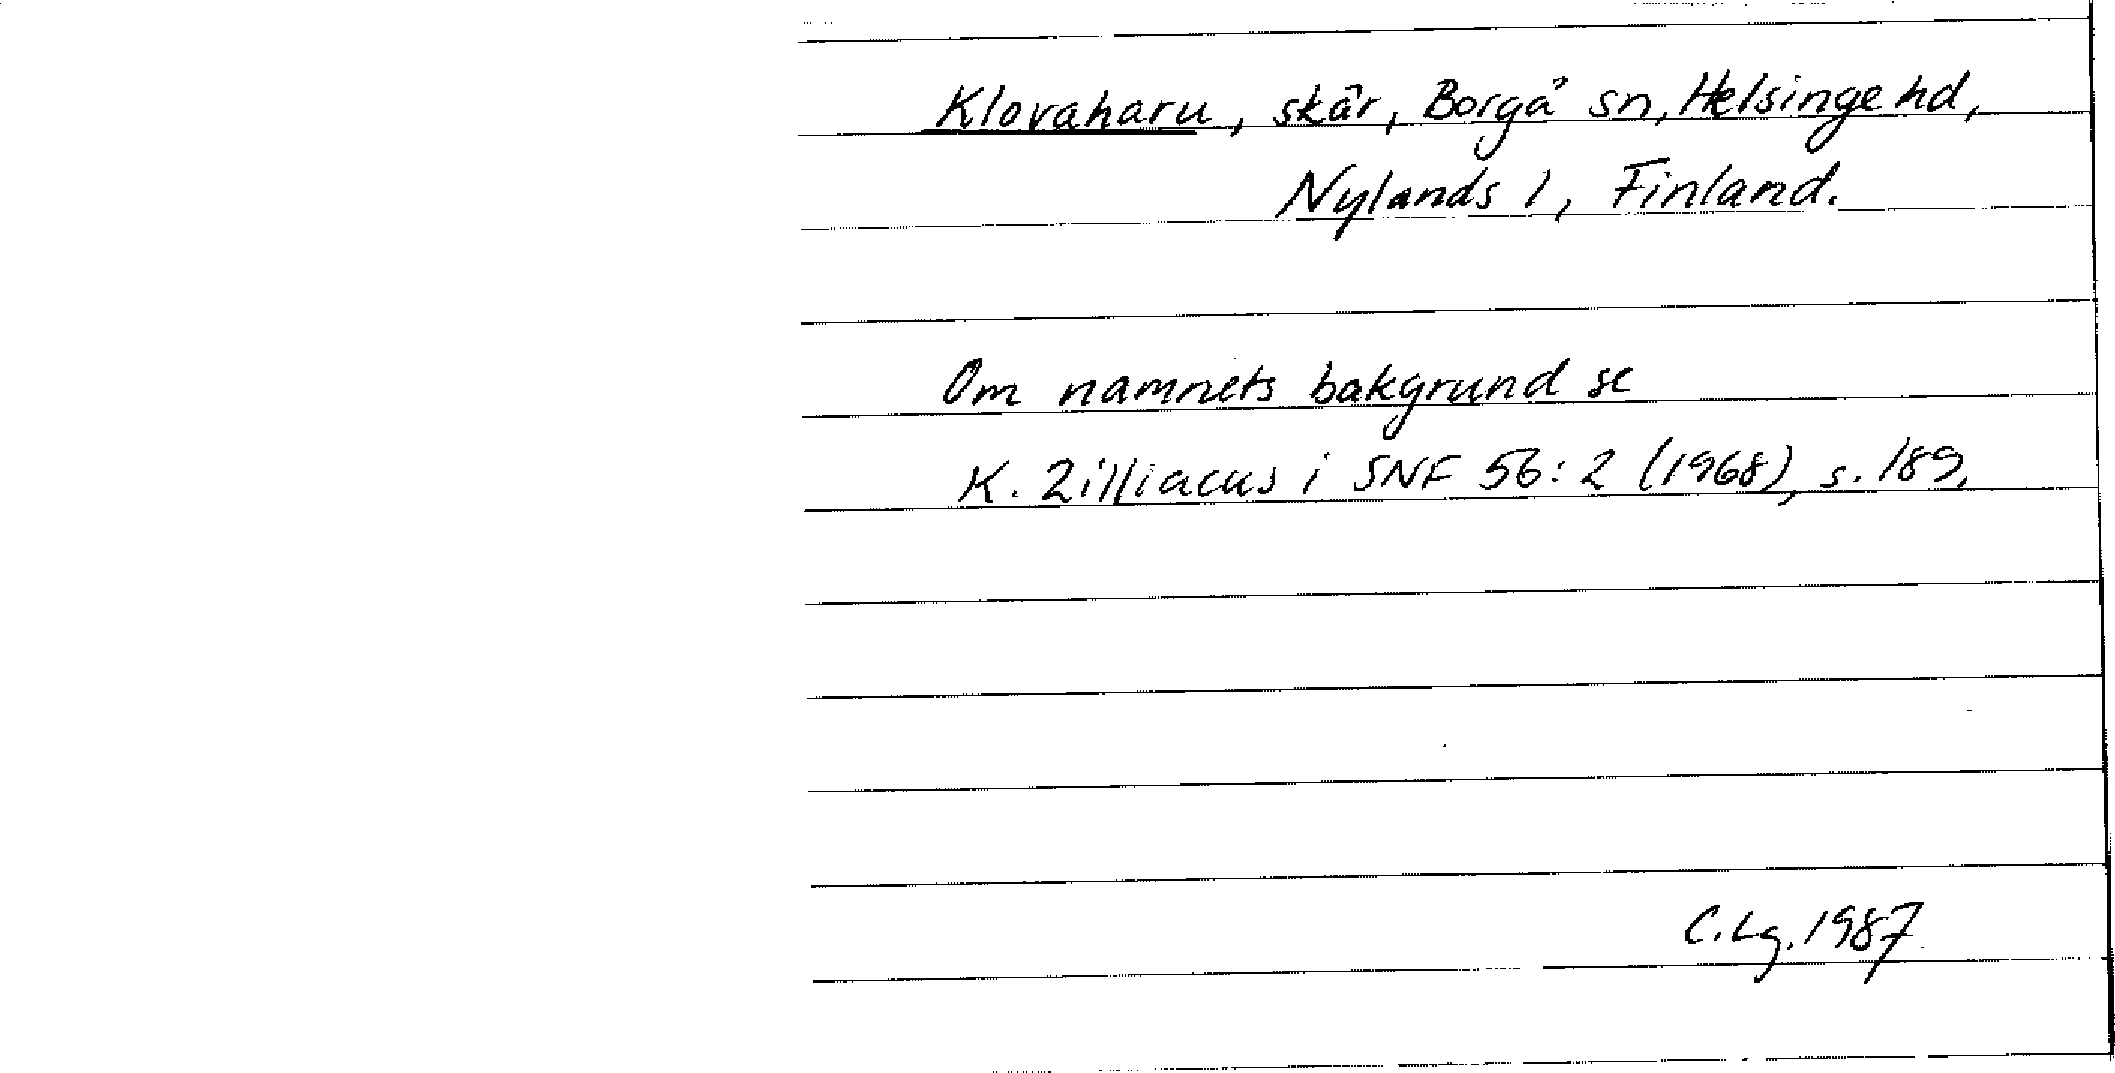 Klovaharu, skär, Borgå sn, Helsinge hd,
Nylands l, Finland.
Om namnets bakgrund se
K. Zilliacus i SNF 56:2 (1968), s. 189.
C.Lg. 1987